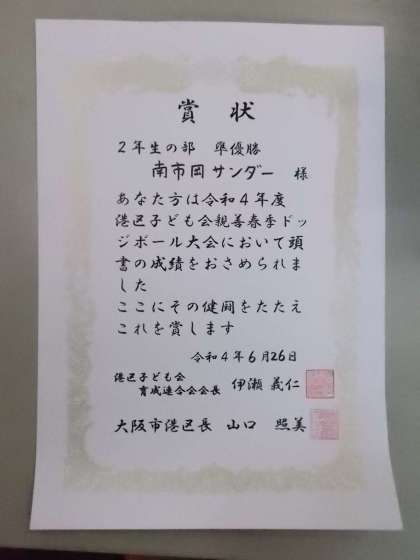 賞状
2年生の部 準優勝
南市岡サンダー 様
あなた方は令和4年度
港区子ども会親善春季ドッ
ジボール大会において頭
書の成績をおさめられま
した
ここにその健闘をたたえ
これを賞します
令和4年6月26日
港区子ども会
育成連合会会長 伊瀬 義仁
大阪市港区長 山口 照美